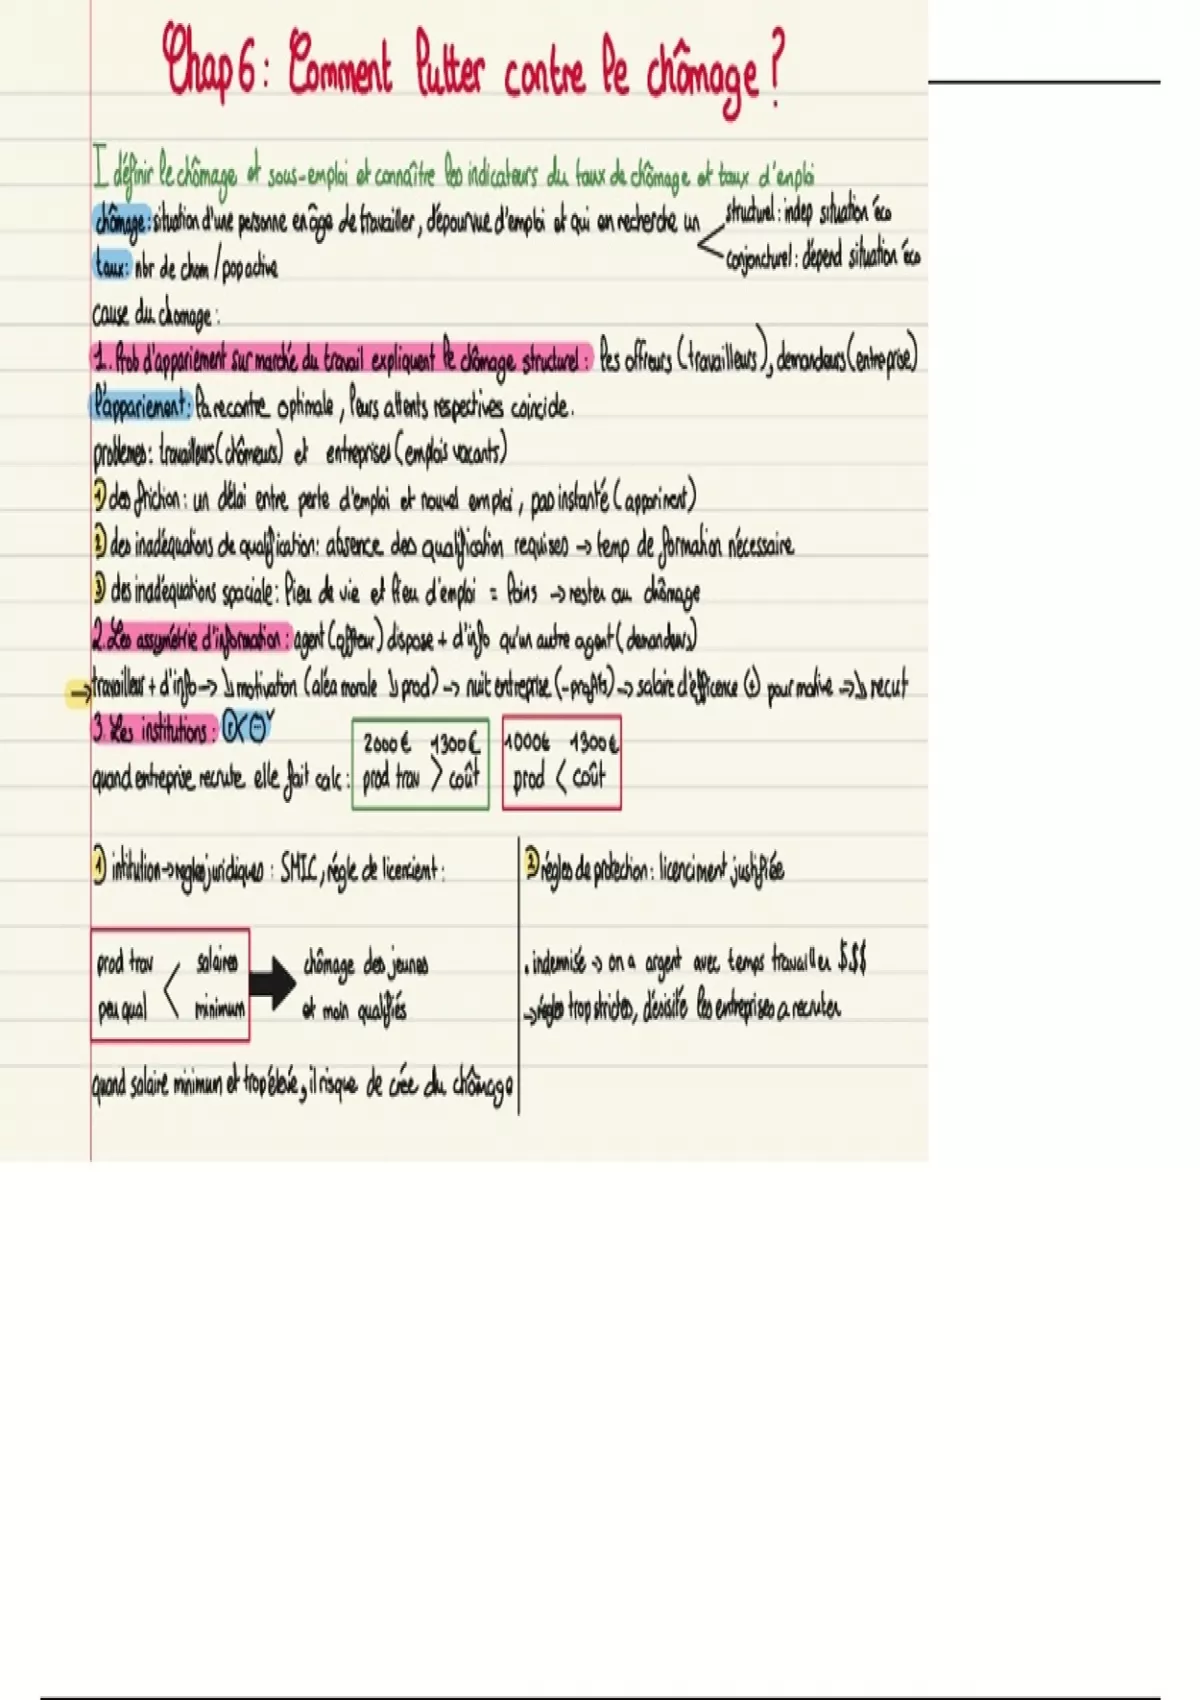 Chap 6 : Comment lutter contre le chômage ?
I définir le chômage et sous-emploi et connaître les indicateurs du taux de chômage et taux d'emploi
chômage : situation d'une personne en âge de travailler, dépourvue d'emploi et qui en recherche un
structurel : indep situation éco
conjoncturel : dépend situation éco
taux : nbr de chom / pop active
cause du chomage :
1. Prob d'appariement sur marché du travail expliquent le chômage structurel : les offreurs (travailleurs), demandeurs (entreprise)
l'appariement : la recontre optimale, leurs attents respectives coincide.
problemes : travailleurs (chômeurs) et entreprises (emplois vacants)
1 des friction : un délai entre perte d'emploi et nouvel emploi, pas instanté (appariment)
2 des inadéquations de qualification : absence des qualification requises → temp de formation nécessaire
3 des inadéquations spaciale : lieu de vie et lieu d'emploi = loins → rester au chômage
2. Les assymétrie d'information : agent (offreur) dispose + d'info qu'un autre agent (demandeurs)
→ travailleur + d'info → ↘ motivation (aléa morale ↘ prod) → nuit entreprise (- profits) → salaire d'efficence (+) pour motive → ↘ recut
3. Les institutions :
2000€ 1300€
1000€ 1300€
quand entreprise recrute elle fait calc : prod trav > coût
prod < coût
1 intitulion → regles juridiques : SMIC, régle de licencient :
prod trav < salaires
peu qual minimum
chômage des jeunes
et moin qualifiés
quand salaire minimum et trop élevé, il risque de crée du chômage
2 régles de protection : licenciment justifiée
. indemnisé → on a argent avec temps travailler $$$
→ régles trop strictes, désisité les entreprises a recruter